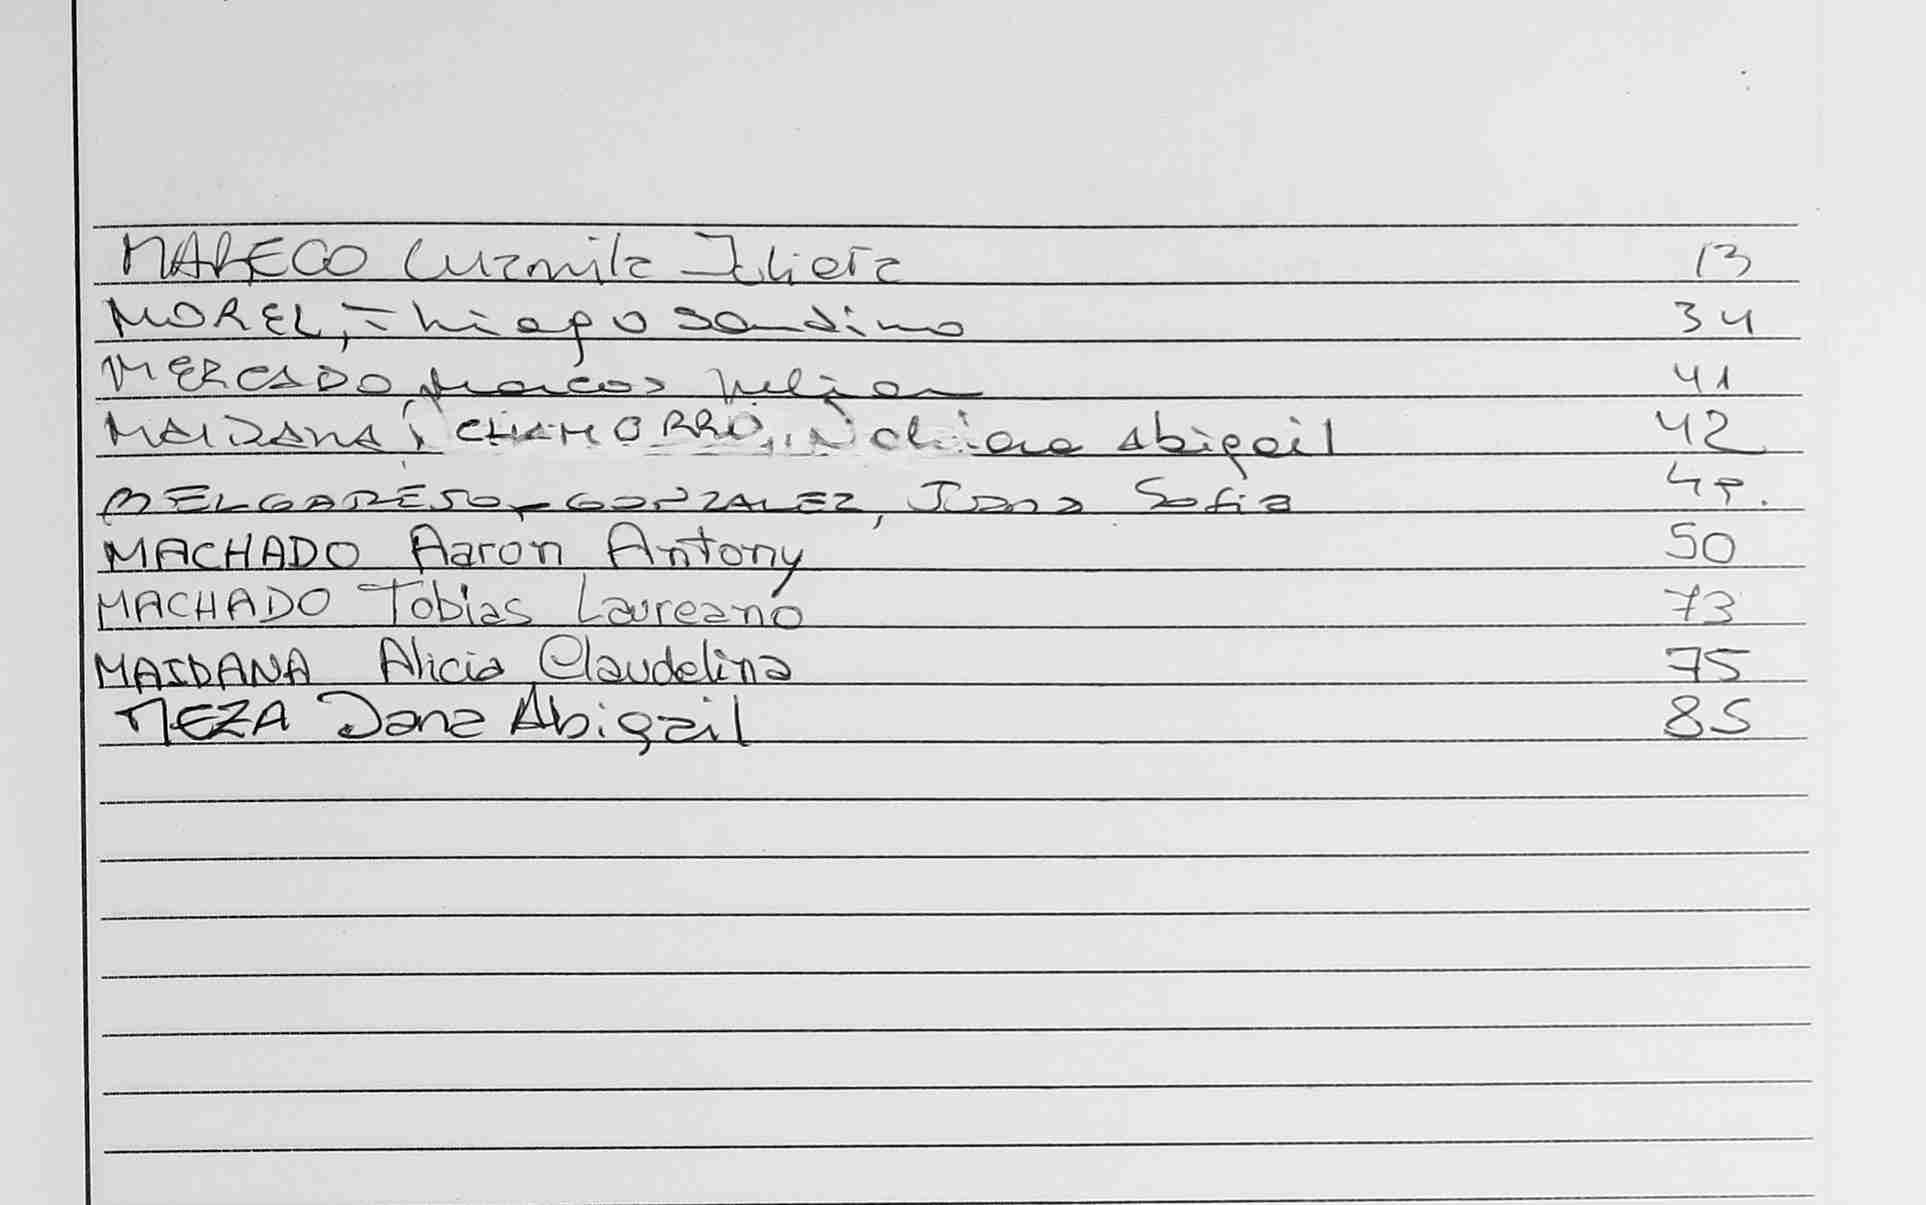 MARECO Luzmila Julieta 13
MOREL, Thiago Sandino 34
MERCADO Marcos Julian 41
MAIDANA CHAMORRO, Chiara Abigail 42
MELGAREJO GONZALEZ, Juana Sofia
MACHADO Aaron Antony 50
MACHADO Tobias Laureano 73
MAIDANA Alicia Claudelina 75
MEZA Dana Abigail 85